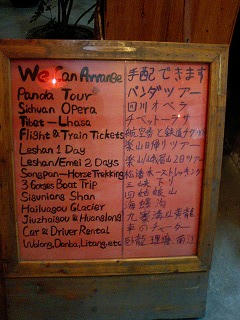 We Can Arrange 手配できます
Panda Tour パンダツアー
Sichuan Opera 四川オペラ
Tibet - Lhasa チベット-ラサ
Flight & Train Tickets 航空券と鉄道チケット
Leshan 1 Day 楽山日帰りツアー
Leshan/Emei 2 Days 楽山/峨眉山2日ツアー
Songpan - Horse Trekking 松潘ホーストレッキング
3 Gorges Boat Trip 三峡下り
Siguniang Shan 四姑娘山
Hailuogou Glacier 海螺溝
Jiuzhaigou & Huanglong 九寨溝と黄龍
Car & Driver Rental 車のチャーター
Wolong, Danba, Litang, etc 臥龍 理塘